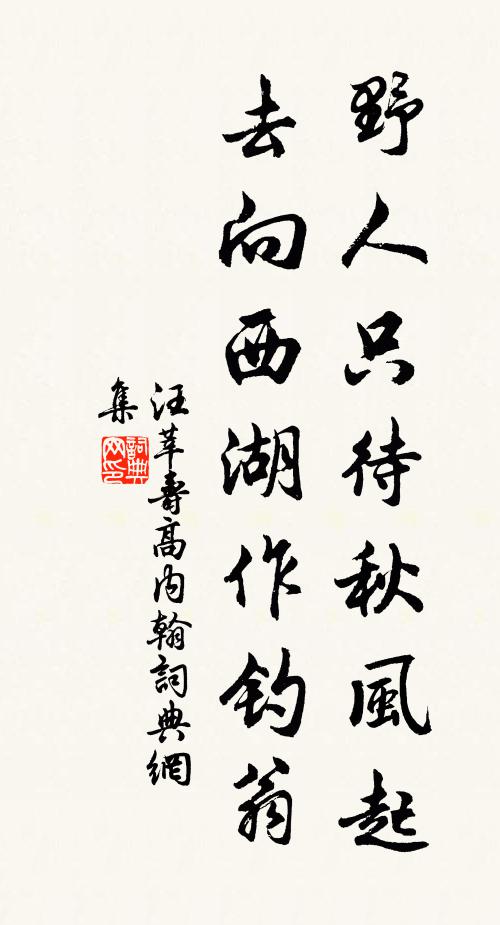 野人只待秋風起
去向西湖作釣翁
汪莘壽高內翰詞典網
集
詞典
网印